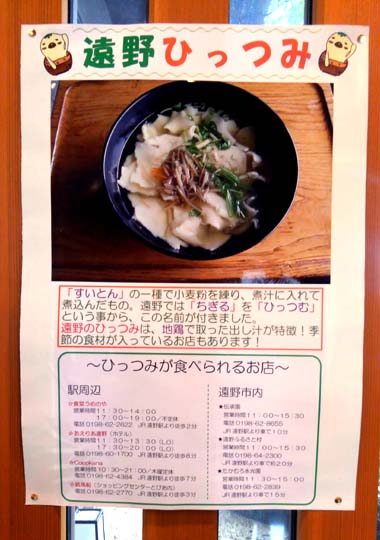 遠野ひっつみ
「すいとん」の一種で小麦粉を練り、煮汁に入れて
煮込んだもの。遠野では「ちぎる」を「ひっつむ」
という事から、この名前が付きました。
遠野のひっつみは、地鶏で取った出し汁が特徴！季
節の食材が入っているお店もあります！
～ひっつみが食べられるお店～
駅周辺
☆食堂うめのや
営業時間11：30～14：00
17：00～19：00／不定休
電話0198-62-2622 JR遠野駅より徒歩2分
☆あえりあ遠野（ホテル）
営業時間11：30～13：30（LO）
17：30～20：00（LO）
電話0198-60-1700 JR遠野駅より徒歩8分
☆Cocokana
営業時間10：30～21：00／木曜定休
電話0198-62-4384 JR遠野駅より徒歩7分
（ショッピングセンターとぴあ内）
電話0198-62-2770 JR遠野駅より徒歩3分
遠野市内
★伝承園
営業時間11：00～15：30
電話0198-62-8655
JR遠野駅より車で10分
★遠野ふるさと村
営業時間11：00～15：00
電話0198-64-2300
JR遠野駅より車で約20分
★たかむろ水光園
営業時間11：30～15：00
電話0198-62-2839
JR遠野駅より車で15分